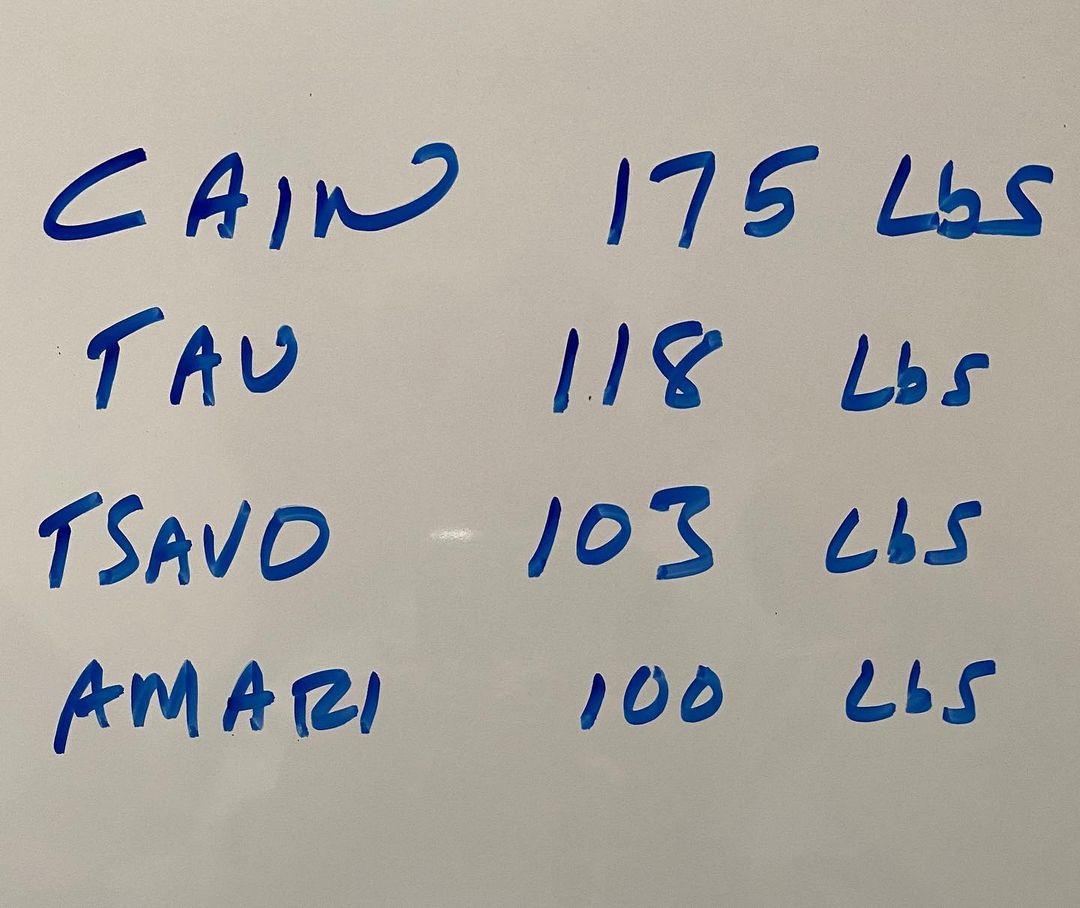 CAIN 175 Lbs
TAU 118 Lbs
TSAVO 103 Lbs
AMARI 100 Lbs